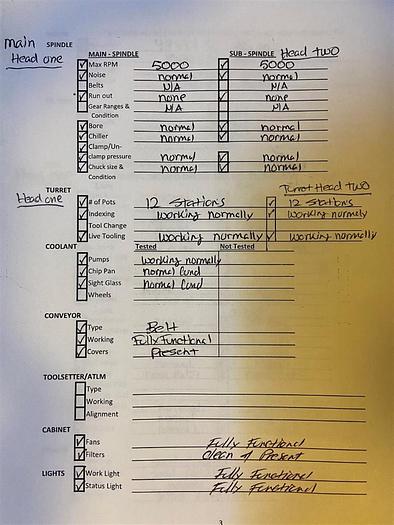 main SPINDLE
Head one
MAIN - SPINDLE SUB - SPINDLE Head two
Max RPM 5000 5000
Noise normal normal
Belts N/A N/A
Run out none none
Gear Ranges & Condition N/A N/A
Bore normal normal
Chiller normal normal
Clamp/Un-
clamp pressure normal normal
Chuck size & Condition normal normal
TURRET Turret Head two
Head one
# of Pots 12 Stations 12 Stations
Indexing Working normally Working normally
Tool Change
Live Tooling Working normally Working normally
COOLANT Tested Not Tested
Pumps Working normally
Chip Pan normal Cond
Sight Glass normal Cond
Wheels
CONVEYOR
Type Belt
Working Fully Functional
Covers Present
TOOLSETTER/ATLM
Type
Working
Alignment
CABINET
Fans Fully Functional
Filters Clean & Present
LIGHTS Work Light Fully Functional
Status Light Fully Functional
3